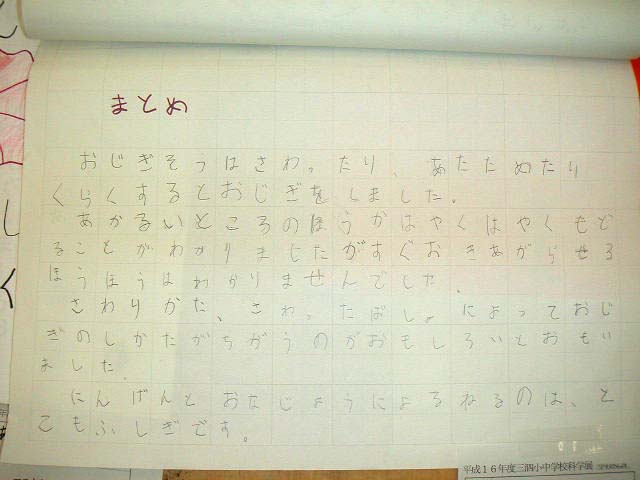 まとめ
おじぎそうはさわったり、あたためたり
くらくするとおじぎをしました。
あかるいところのほうがはやくはやくもど
ることがわかりましたがすぐおきあがらせる
ほうほうはわかりませんでした。
さわりかた、さわったばしょによっておじ
ぎのしかたがちがうのがおもしろいとおもい
ました。
にんげんとおなじようによるねるのは、と
てもふしぎです。
平成16年度三泗小中学校科学展